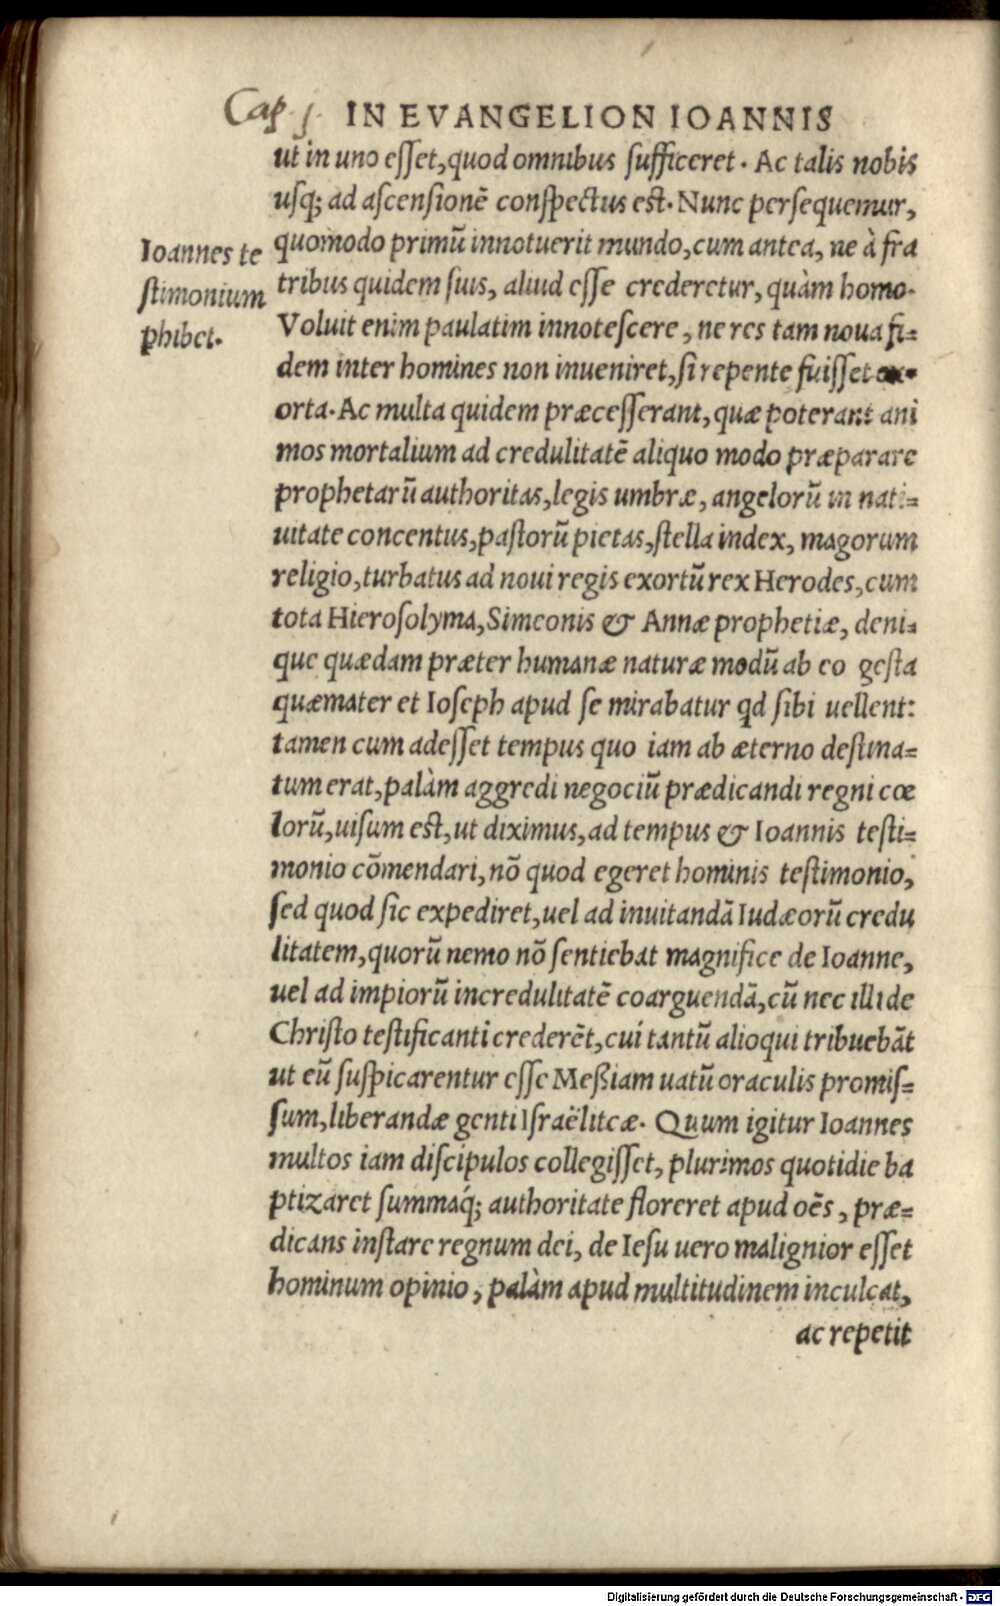 Cap. j.
IN EVANGELION IOANNIS
ut in uno esset, quod omnibus sufficeret. Ac talis nobis
usq; ad ascensionē conspectus est. Nunc persequemur,
quomodo primū innotuerit mundo, cum antea, ne à fra
tribus quidem suis, aliud esse crederetur, quàm homo.
Voluit enim paulatim innotescere, ne res tam noua fi=
dem inter homines non inueniret, si repente fuisset ex=
orta. Ac multa quidem præcesserant, quæ poterant ani
mos mortalium ad credulitatē aliquo modo præparare
prophetarū authoritas, legis umbræ, angelorū in nati=
uitate concentus, pastorū pietas, stella index, magorum
religio, turbatus ad noui regis exortū rex Herodes, cum
tota Hierosolyma, Simeonis & Annæ prophetiæ, deni=
que quædam præter humanæ naturæ modū ab eo gesta
quæmater et Ioseph apud se mirabatur qd sibi uellent:
tamen cum adesset tempus quo iam ab æterno destina=
tum erat, palàm aggredi negociū prædicandi regni cœ
lorū, uisum est, ut diximus, ad tempus & Ioannis testi=
monio cōmendari, nō quod egeret hominis testimonio,
sed quod sic expediret, uel ad inuitandā Iudæorū credu
litatem, quorū nemo nō sentiebat magnifice de Ioanne,
uel ad impiorū incredulitatē coarguendā, cū nec illi de
Christo testificanti crederēt, cui tantū alioqui tribuebāt
ut eū suspicarentur esse Meßiam uatū oraculis promis=
sum, liberandæ genti Israëliticæ. Quum igitur Ioannes
multos iam discipulos collegisset, plurimos quotidie ba
ptizaret summaq́; authoritate floreret apud oēs, præ=
dicans instare regnum dei, de Iesu uero malignior esset
hominum opinio, palàm apud multitudinem inculcat,
ac repetit
Ioannes te
stimonium
ꝑhibet.
Digitalisierung gefördert durch die Deutsche Forschungsgemeinschaft - DFG